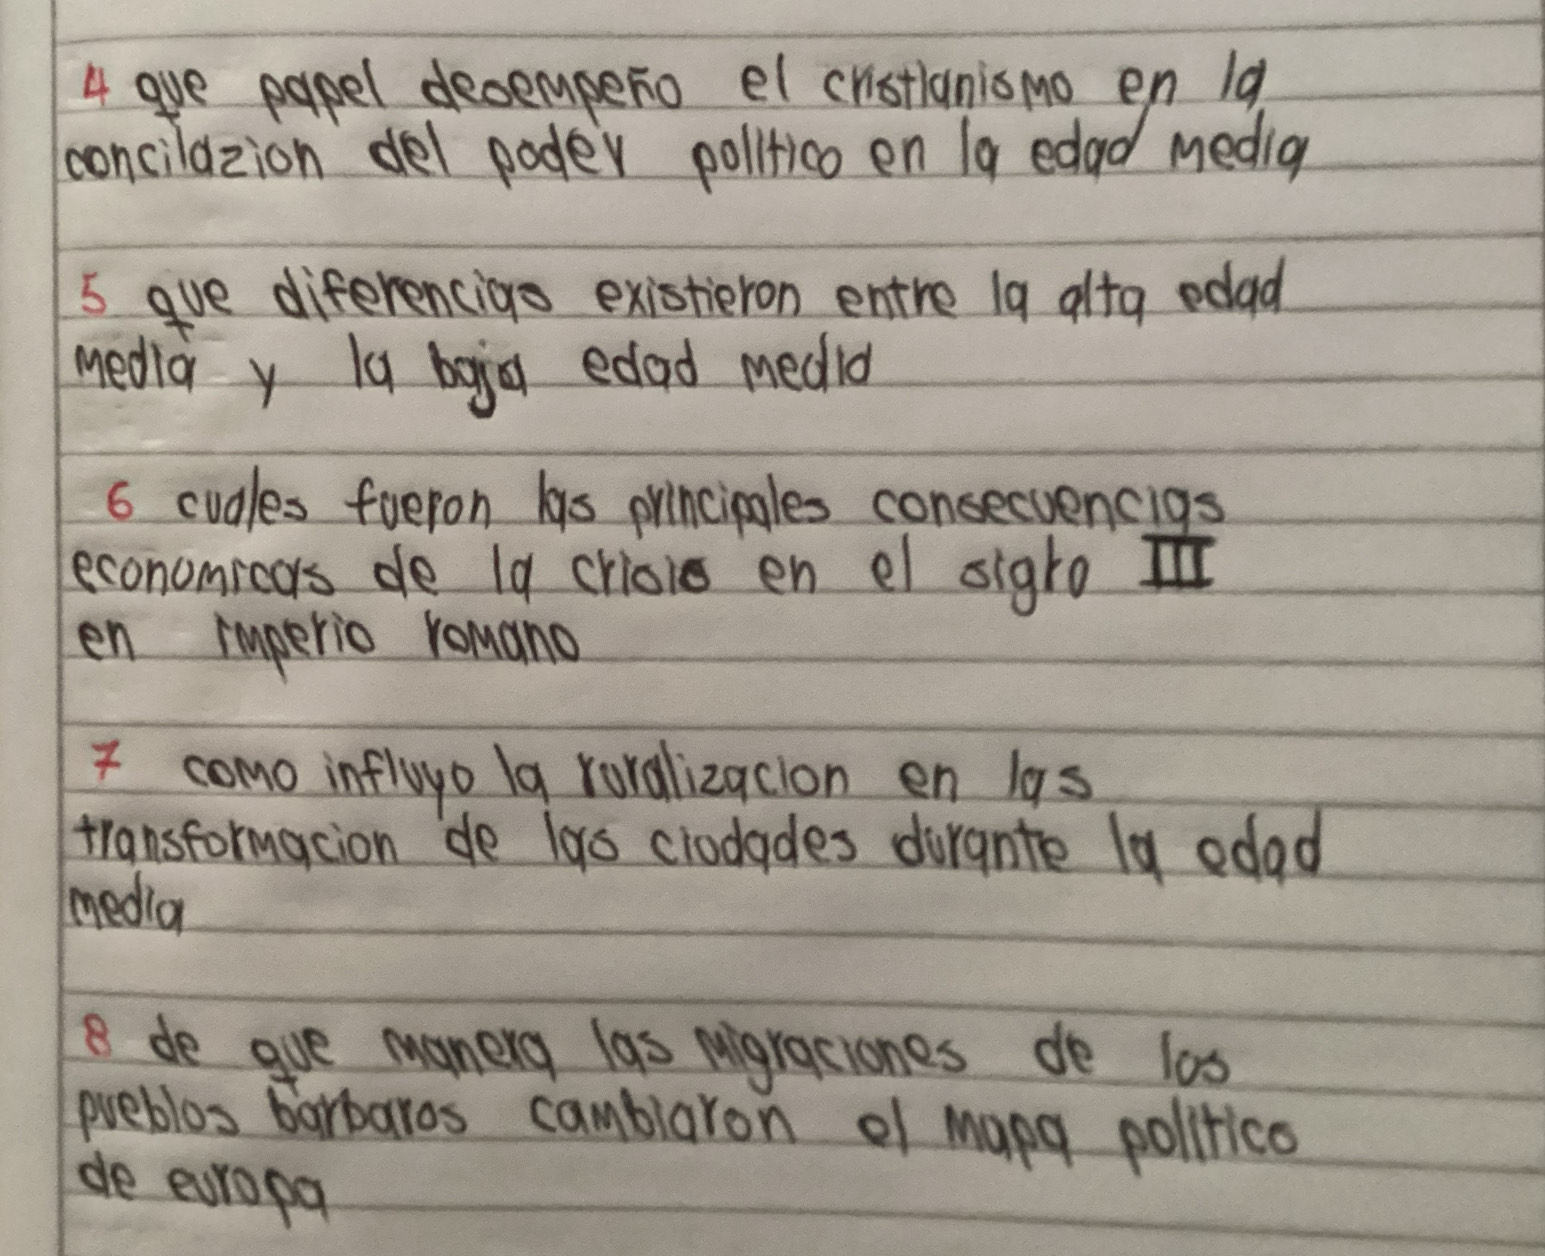 4 que papel desempeño el cristianismo en la
concilazion del poder politico en la edad media
5 que diferencias existieron entre la alta edad
media y la baja edad media
6 cuales fueron las principales consecuencias
economicas de la crisis en el siglo III
en imperio romano
7 como influyo la ruralizacion en las
transformacion de las ciudades durante la edad
media
8 de que manera las migraciones de los
pueblos barbaros cambiaron el mapa politico
de europa